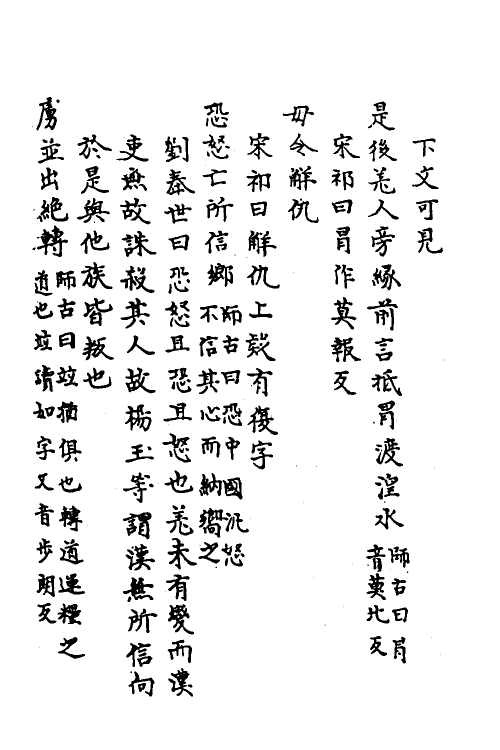 下文可見
是後羌人旁緣前言抵冒渡湟水師古曰冐音莫比反
宋祁曰冒作莫報反
毋令解仇
宋祁曰解仇上疑有復字
恐怒亡所信鄉師古曰恐中國汎怒不信其心而納嚮之
劉奉世曰恐怒且恐且怒也羌未有變而漢
吏無故誅殺其人故楊玉等謂漢無所信向
於是與他族皆叛也
虜並出絕轉師古曰竝猶俱也轉道運糧之道也竝讀如字又音步朗反